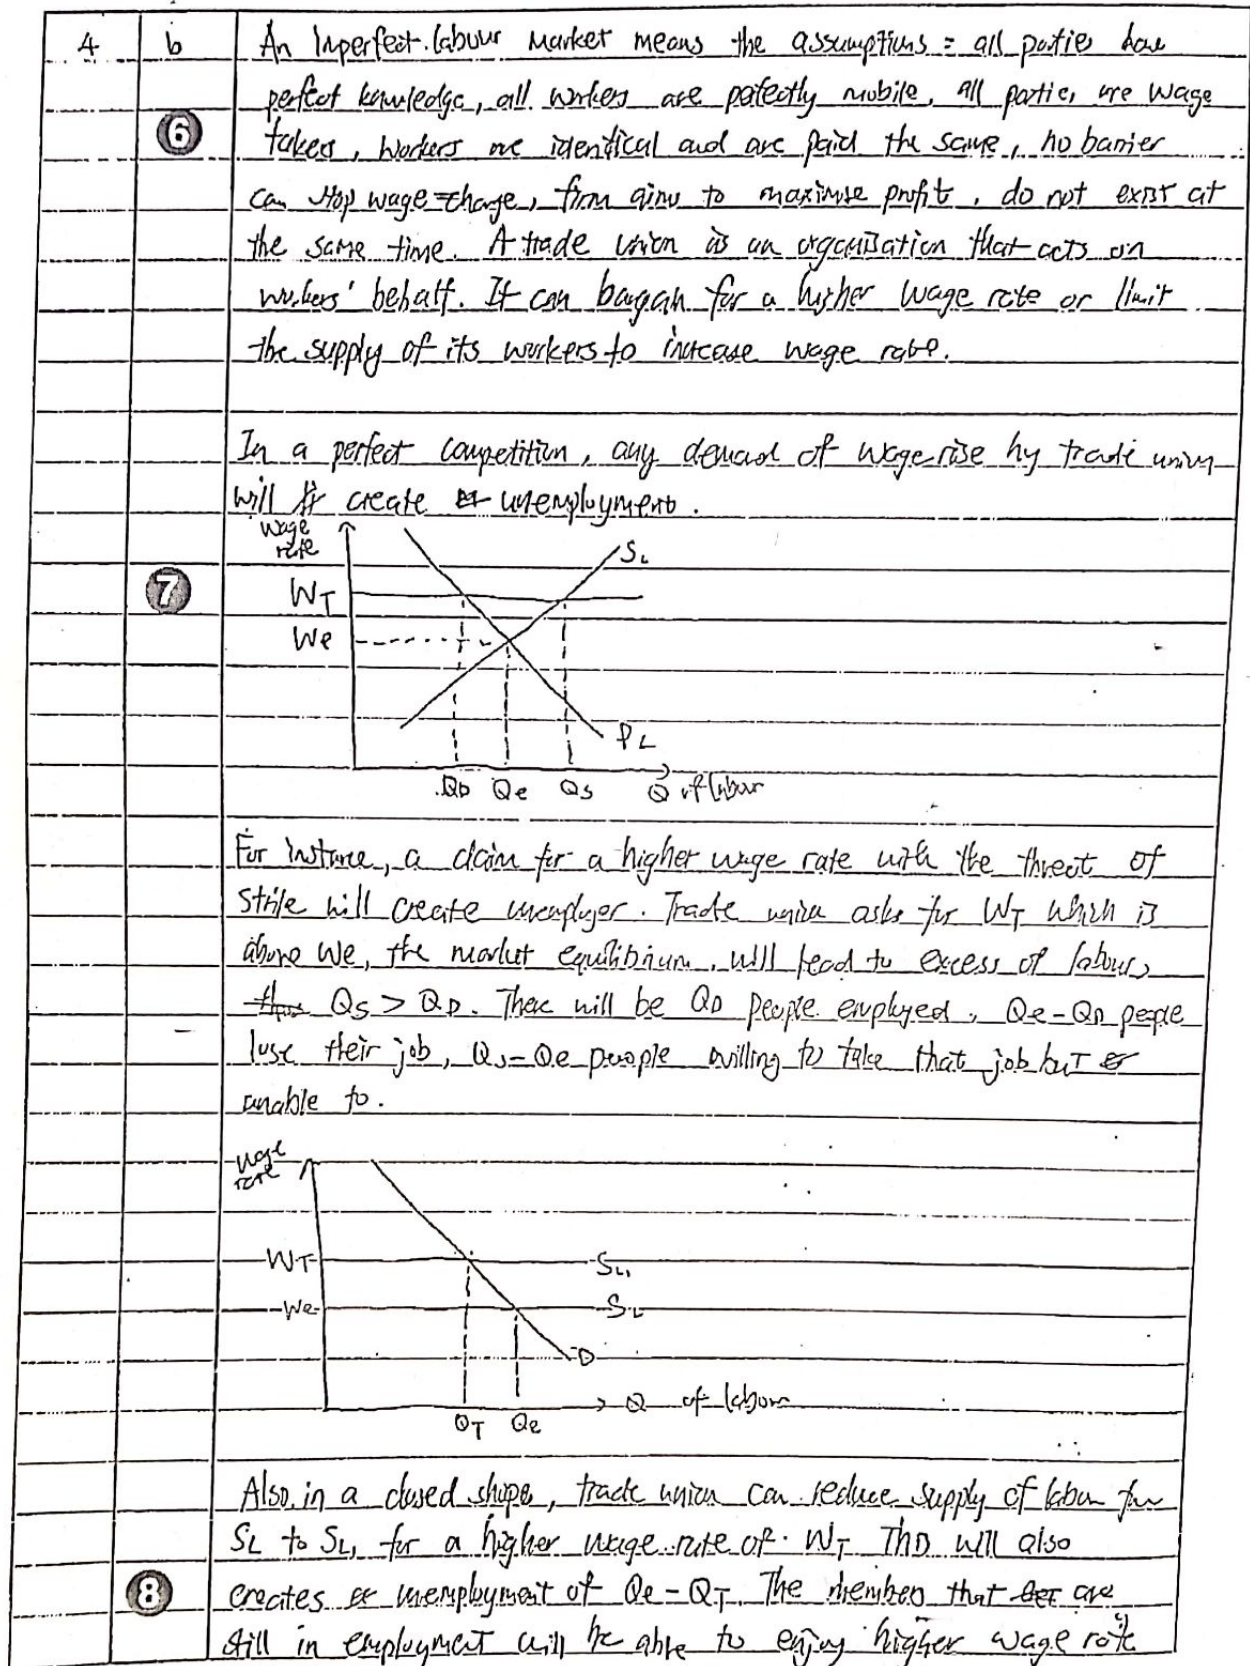 4 b An Imperfect labour market means the assumptions = all parties have
perfect knowledge, all workers are pefectly mobile, all parties are wage
6 takers, workers are identical and are paid the same, no barrier
can stop wage change, firm aims to maximise profit, do not exist at
the same time. A trade union is an organisation that acts on
workers' behalf. It can bargan for a higher wage rate or limit
the supply of its workers to increase wage rate.
In a perfect competition, any demand of wage rise by trade union
will create unemployment.
wage
rate
SL
7 WT
We
DL
QD Qe Qs Q of labour
For instance, a claim for a higher wage rate with the threat of
strike will create unemployer. Trade union asks for WT which is
above We, the market equilibrium, will lead to excess of labour,
QS > QD. There will be QD people employed, Qe-QD people
lose their job, Qs-Qe people willing to take that job but
unable to.
wage
rate
WT SL1
We SL
D
QT Qe Q of labour
Also, in a closed shope, trade union can reduce supply of labour for
SL to SL1 for a higher wage rate of WT. This will also
8 creates unemployment of Qe-QT. The members that are
still in employment will be able to enjoy higher wage rate